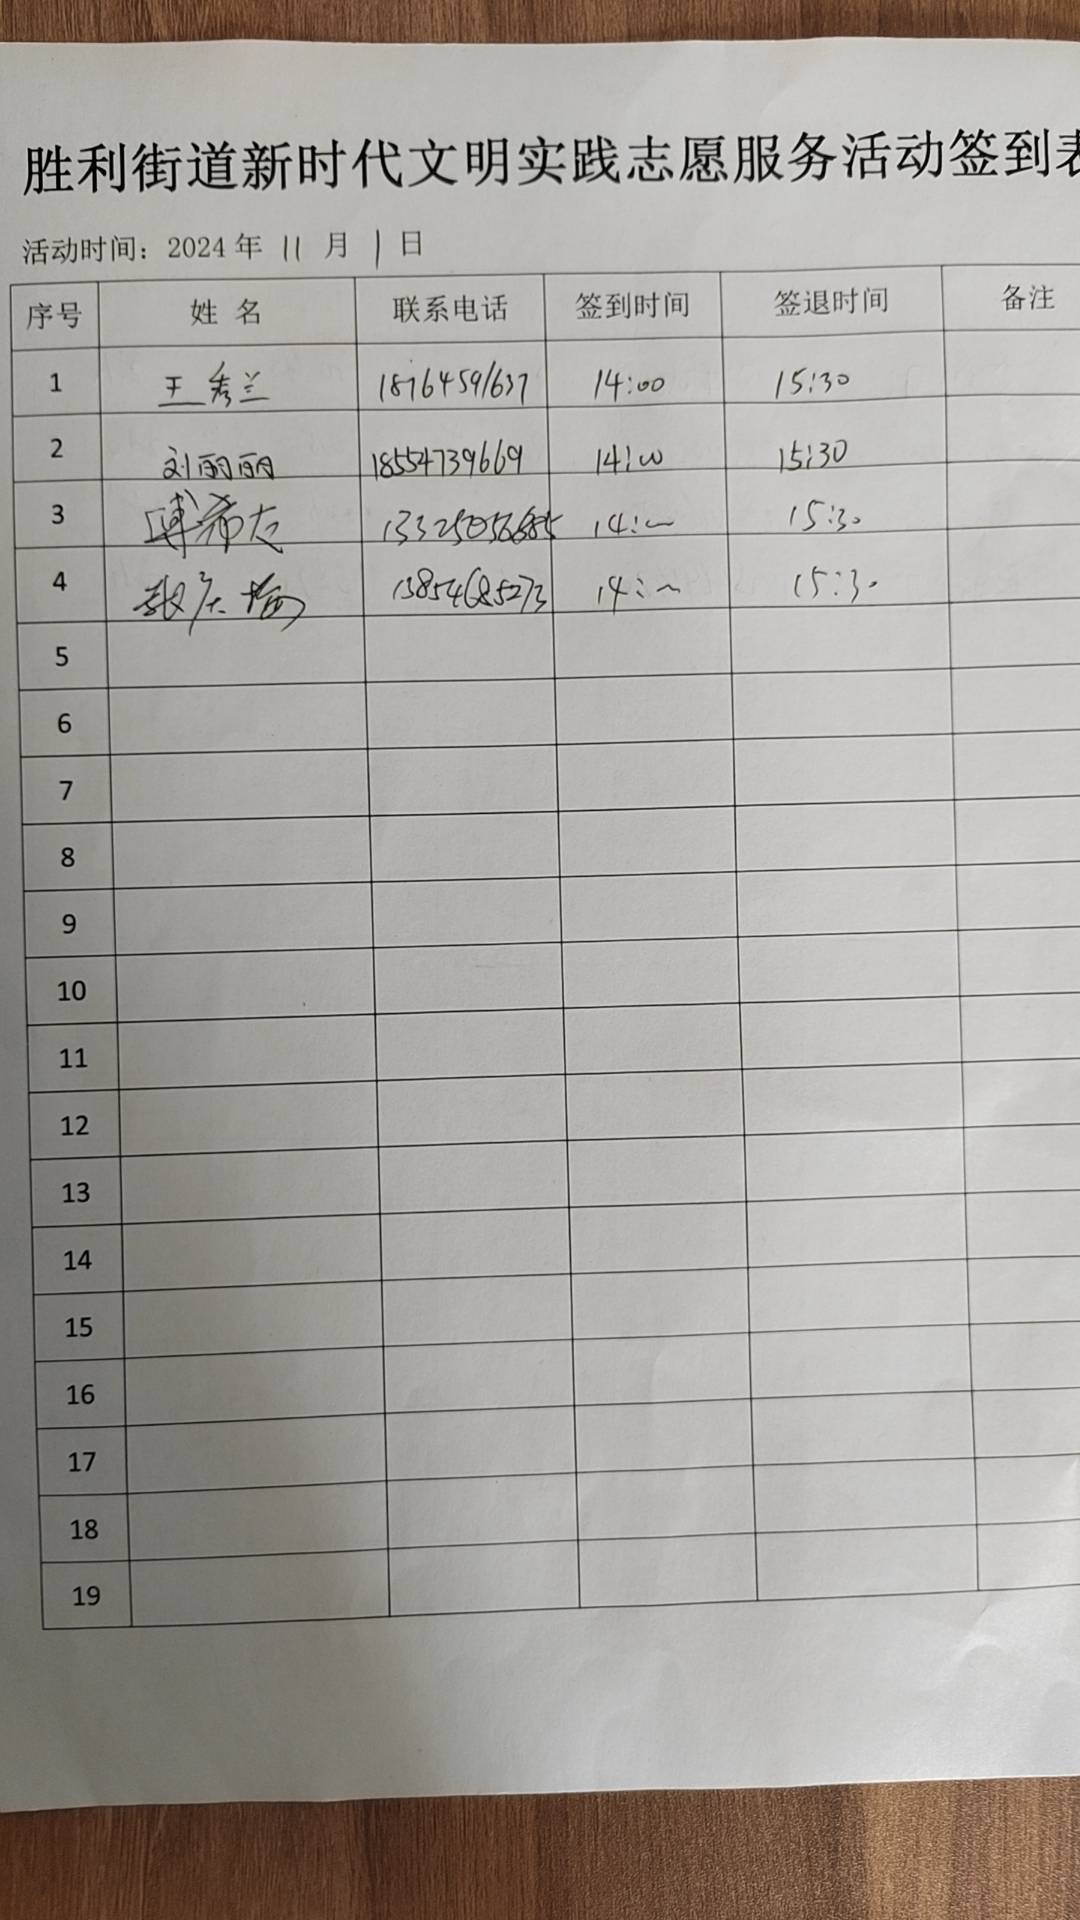 胜利街道新时代文明实践志愿服务活动签到表
活动时间：2024年 11 月 1 日
序号 姓 名 联系电话 签到时间 签退时间 备注
1 王秀兰 18764591637 14:00 15:30
2 刘丽丽 18554739669 14:00 15:30
3 14:00 15:30
4 13854685273 14:00 15:30
5
6
7
8
9
10
11
12
13
14
15
16
17
18
19